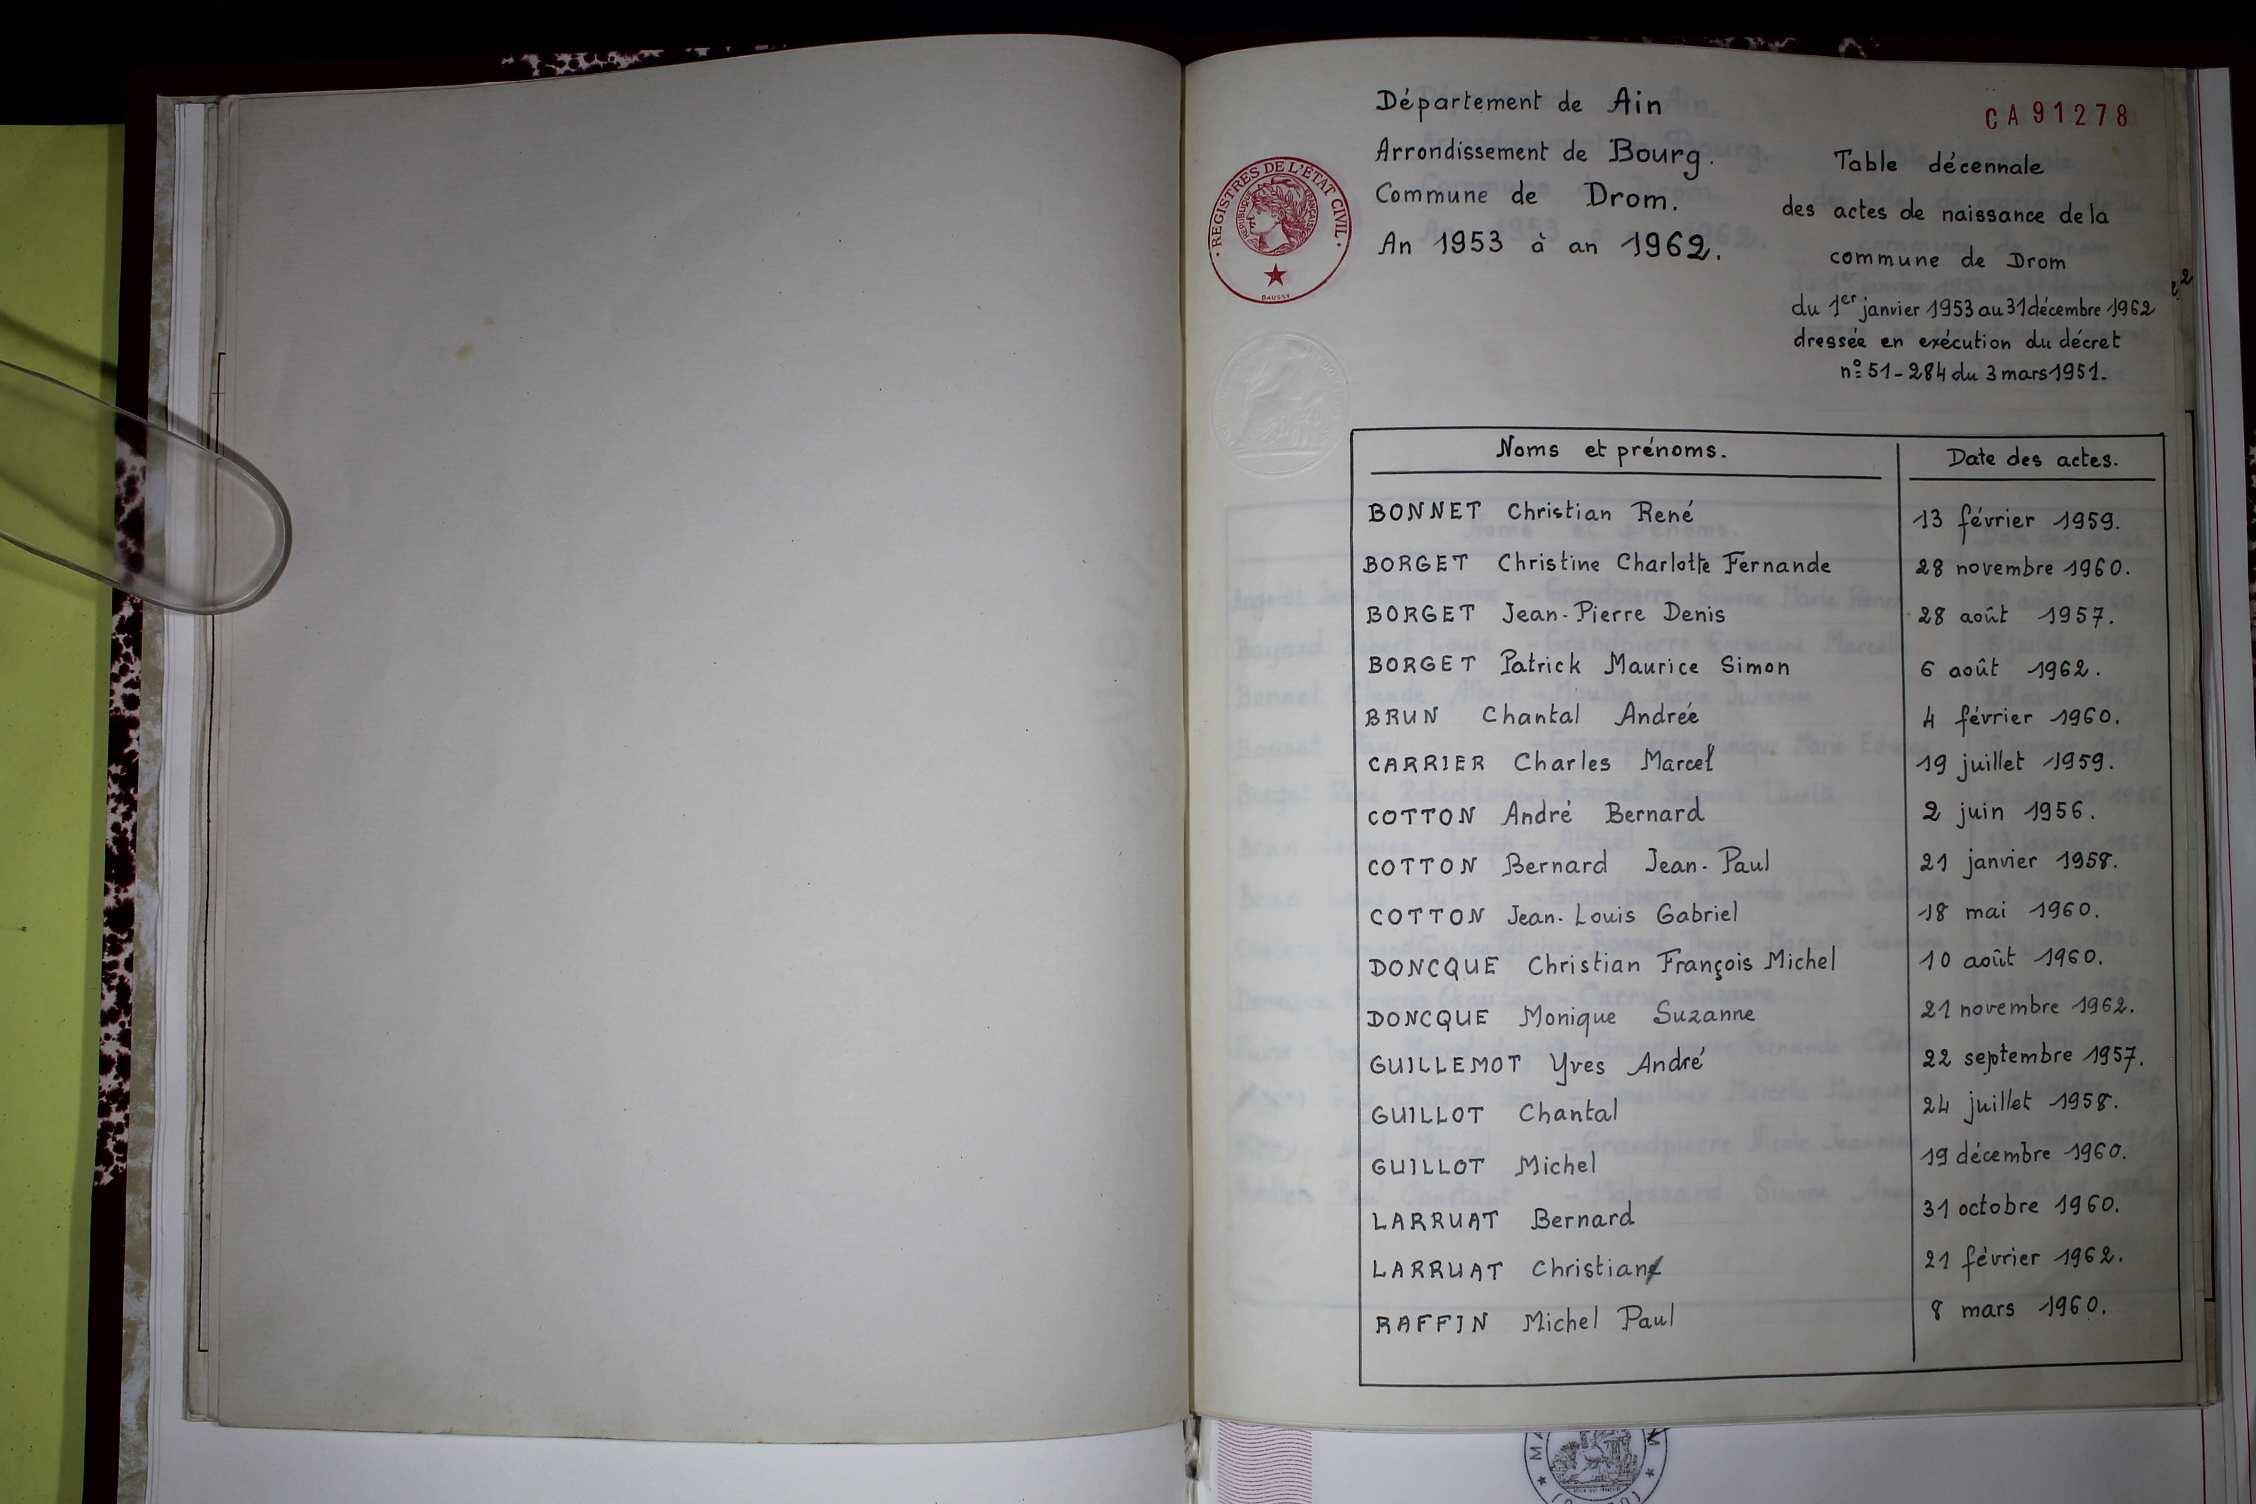 Département de Ain
Arrondissement de Bourg.
Commune de Drom.
An 1953 à an 1962.
REGISTRES DE L'ETAT CIVIL
REPUBLIQUE FRANÇAISE
DAUSSY
CA91278
Table décennale
des actes de naissance de la
commune de Drom
du 1er janvier 1953 au 31 décembre 1962
dressée en exécution du décret
nº 51-284 du 3 mars 1951.
Noms et prénoms. Date des actes.
BONNET Christian René 13 février 1959.
BORGET Christine Charlotte Fernande 28 novembre 1960.
BORGET Jean-Pierre Denis 28 août 1957.
BORGET Patrick Maurice Simon 6 août 1962.
BRUN Chantal Andrée 4 février 1960.
CARRIER Charles Marcel 19 juillet 1959.
COTTON André Bernard 2 juin 1956.
COTTON Bernard Jean-Paul 21 janvier 1958.
COTTON Jean-Louis Gabriel 18 mai 1960.
DONCQUE Christian François Michel 10 août 1960.
DONCQUE Monique Suzanne 21 novembre 1962.
GUILLEMOT Yves André 22 septembre 1957.
GUILLOT Chantal 24 juillet 1958.
GUILLOT Michel 19 décembre 1960.
LARRUAT Bernard 31 octobre 1960.
LARRUAT Christian 21 février 1962.
RAFFIN Michel Paul 8 mars 1960.